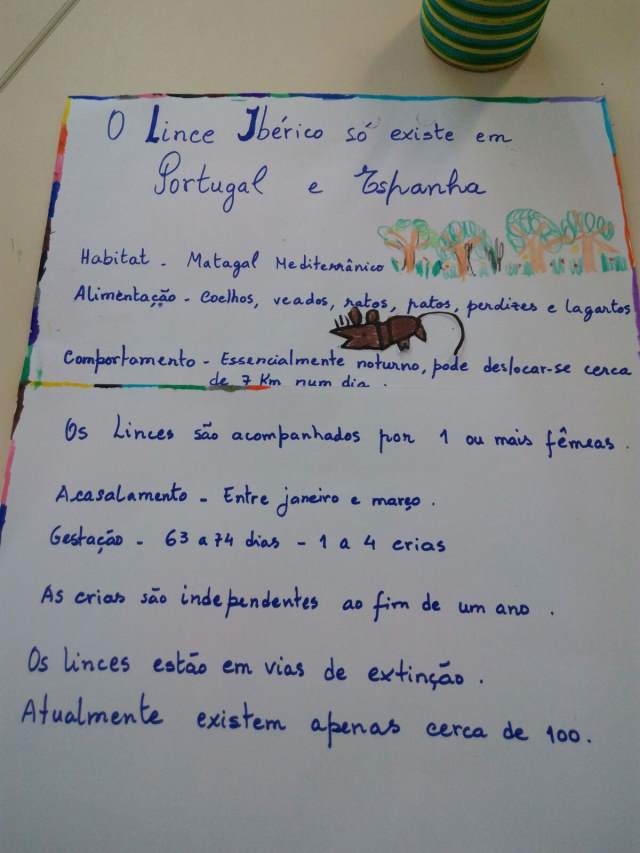 O Lince Ibérico só existe em
Portugal e Espanha
Habitat - Matagal Mediterrânico
Alimentação - Coelhos, veados, ratos, patos, perdizes e lagartos
Comportamento - Essencialmente noturno, pode deslocar-se cerca
de 7 Km num dia.
Os Linces são acompanhados por 1 ou mais fêmeas.
Acasalamento - Entre janeiro e março.
Gestação - 63 a 74 dias - 1 a 4 crias
As crias são independentes ao fim de um ano.
Os linces estão em vias de extinção.
Atualmente existem apenas cerca de 100.